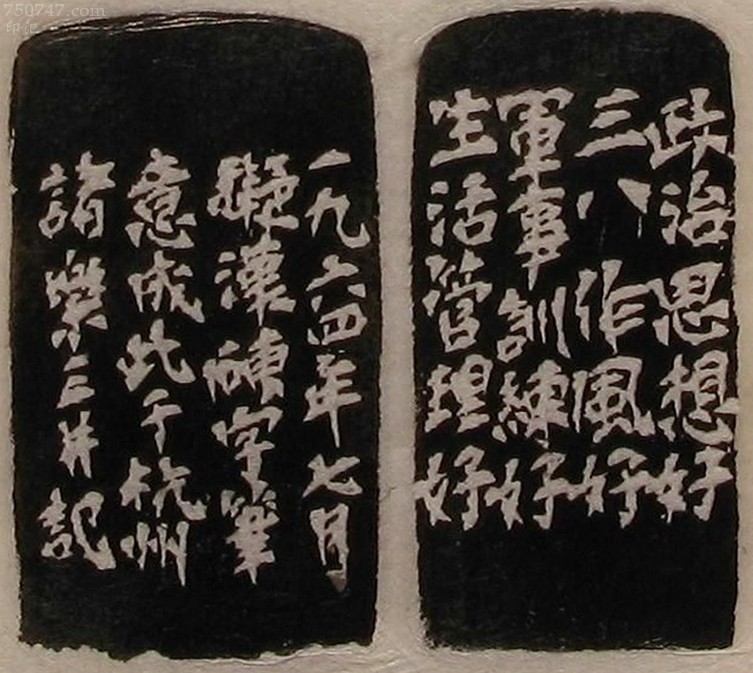 750747.com
政治思想好
三八作風好
軍事訓練好
生活管理好
一九六四年七月
擬漢磚字筆
意成此于杭州
諸樂三并記